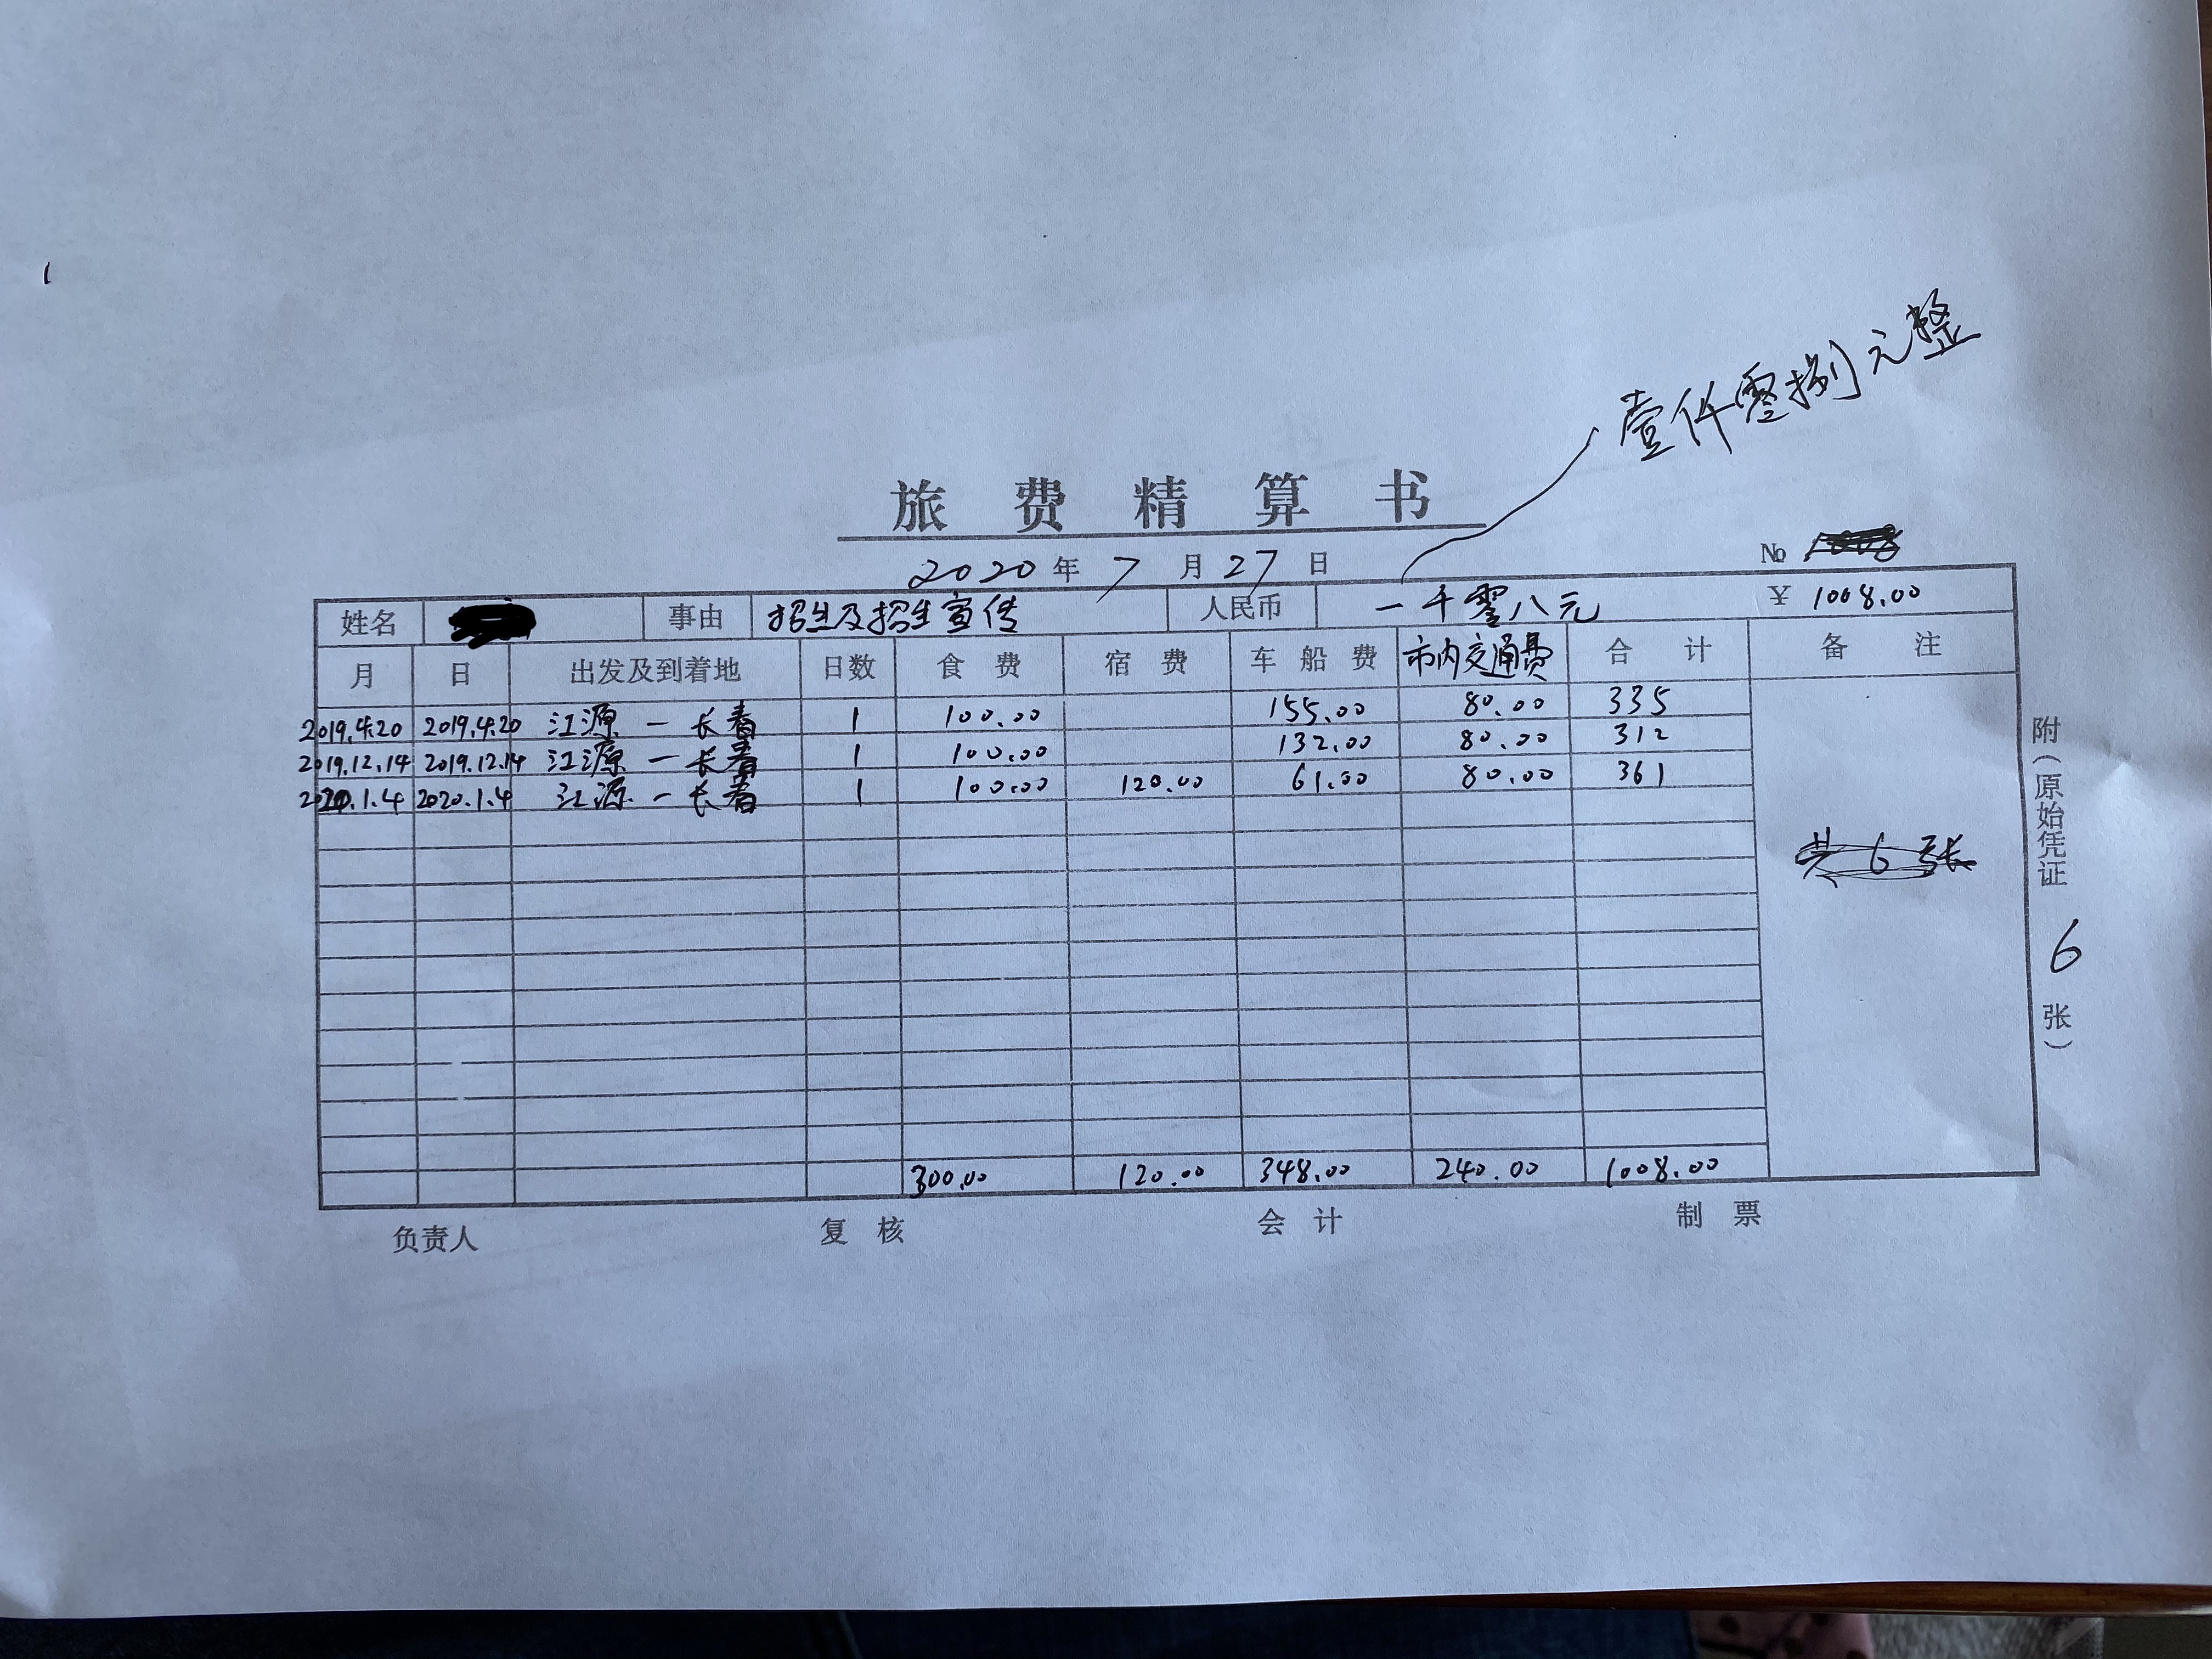 壹仟零捌元整
旅费精算书
2020年7月27日 No
姓名 事由 招生及招生宣传 人民币 一千零八元 ¥ 1008.00
月 日 出发及到着地 日数 食费 宿费 车船费 市内交通费 合计 备注
2019.4.20 2019.4.20 江源—长春 1 100.00 155.00 80.00 335
2019.12.14 2019.12.14 江源—长春 1 100.00 132.00 80.00 312
2020.1.4 2020.1.4 江源—长春 1 100.00 120.00 61.00 80.00 361
共6张
300.00 120.00 348.00 240.00 1008.00
附(原始凭证 6 张)
负责人 复核 会计 制票